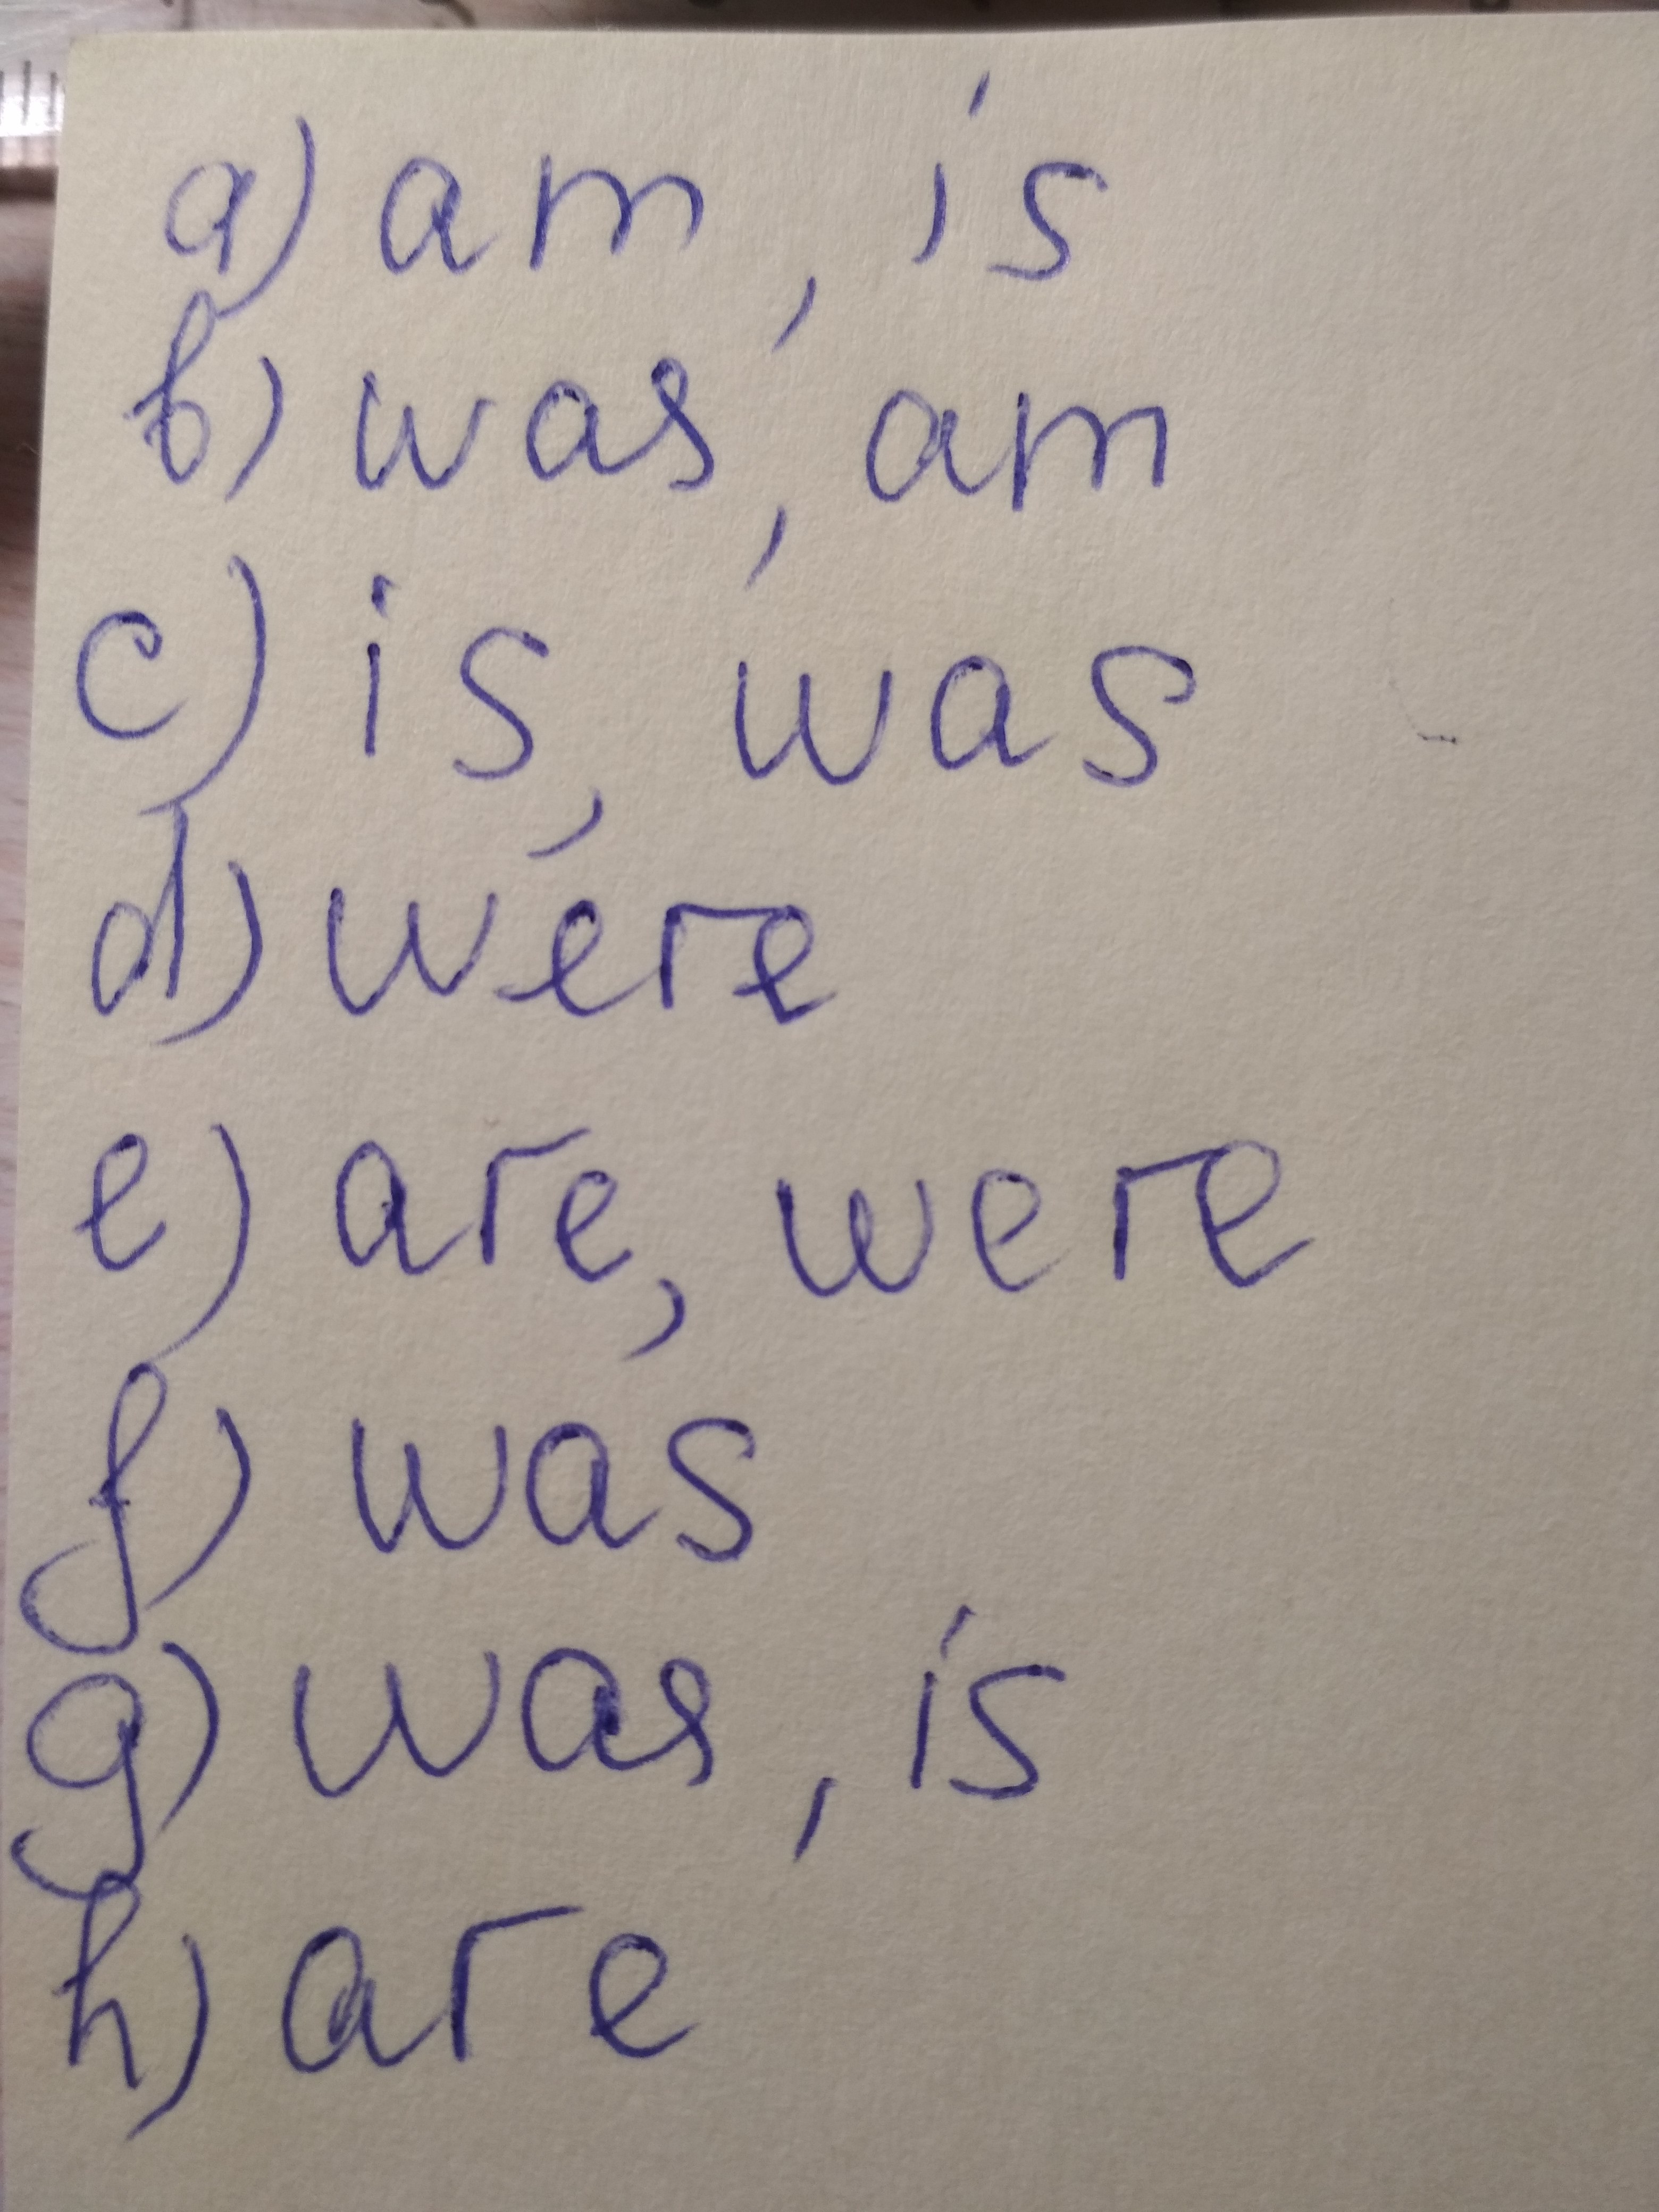 a) am, is
b) was, am
c) is, was
d) were
e) are, were
f) was
g) was, is
h) are